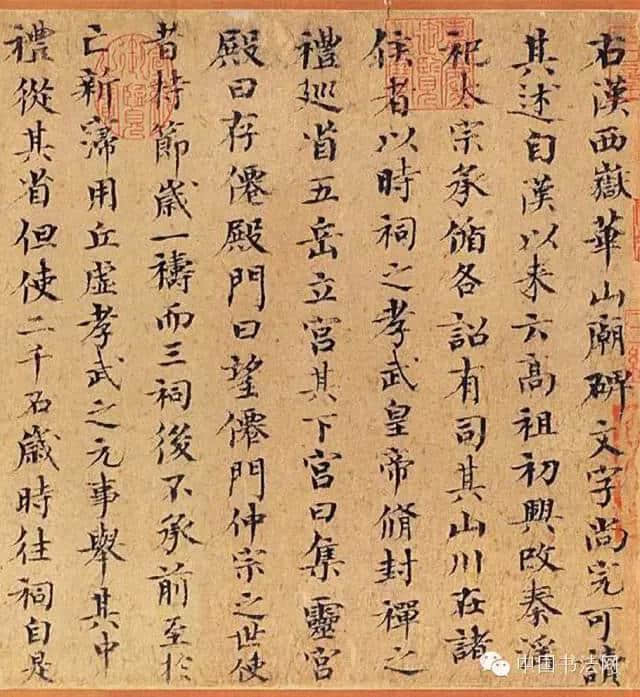 右漢西嶽華山廟碑文字尚完可讀
其述自漢以来云高祖初興改秦淫
祀大宗承循各詔有司其山川在諸
侯者以時祠之孝武皇帝脩封禪之
禮巡省五岳立宫其下宫曰集靈宫
殿曰存僊殿門曰望僊門仲宗之世使
者持節歲一禱而三祠後不承前至於
亡新寖用丘虚孝武之元事舉其中
禮從其省但使二千石歲時往祠自是
中国书法网